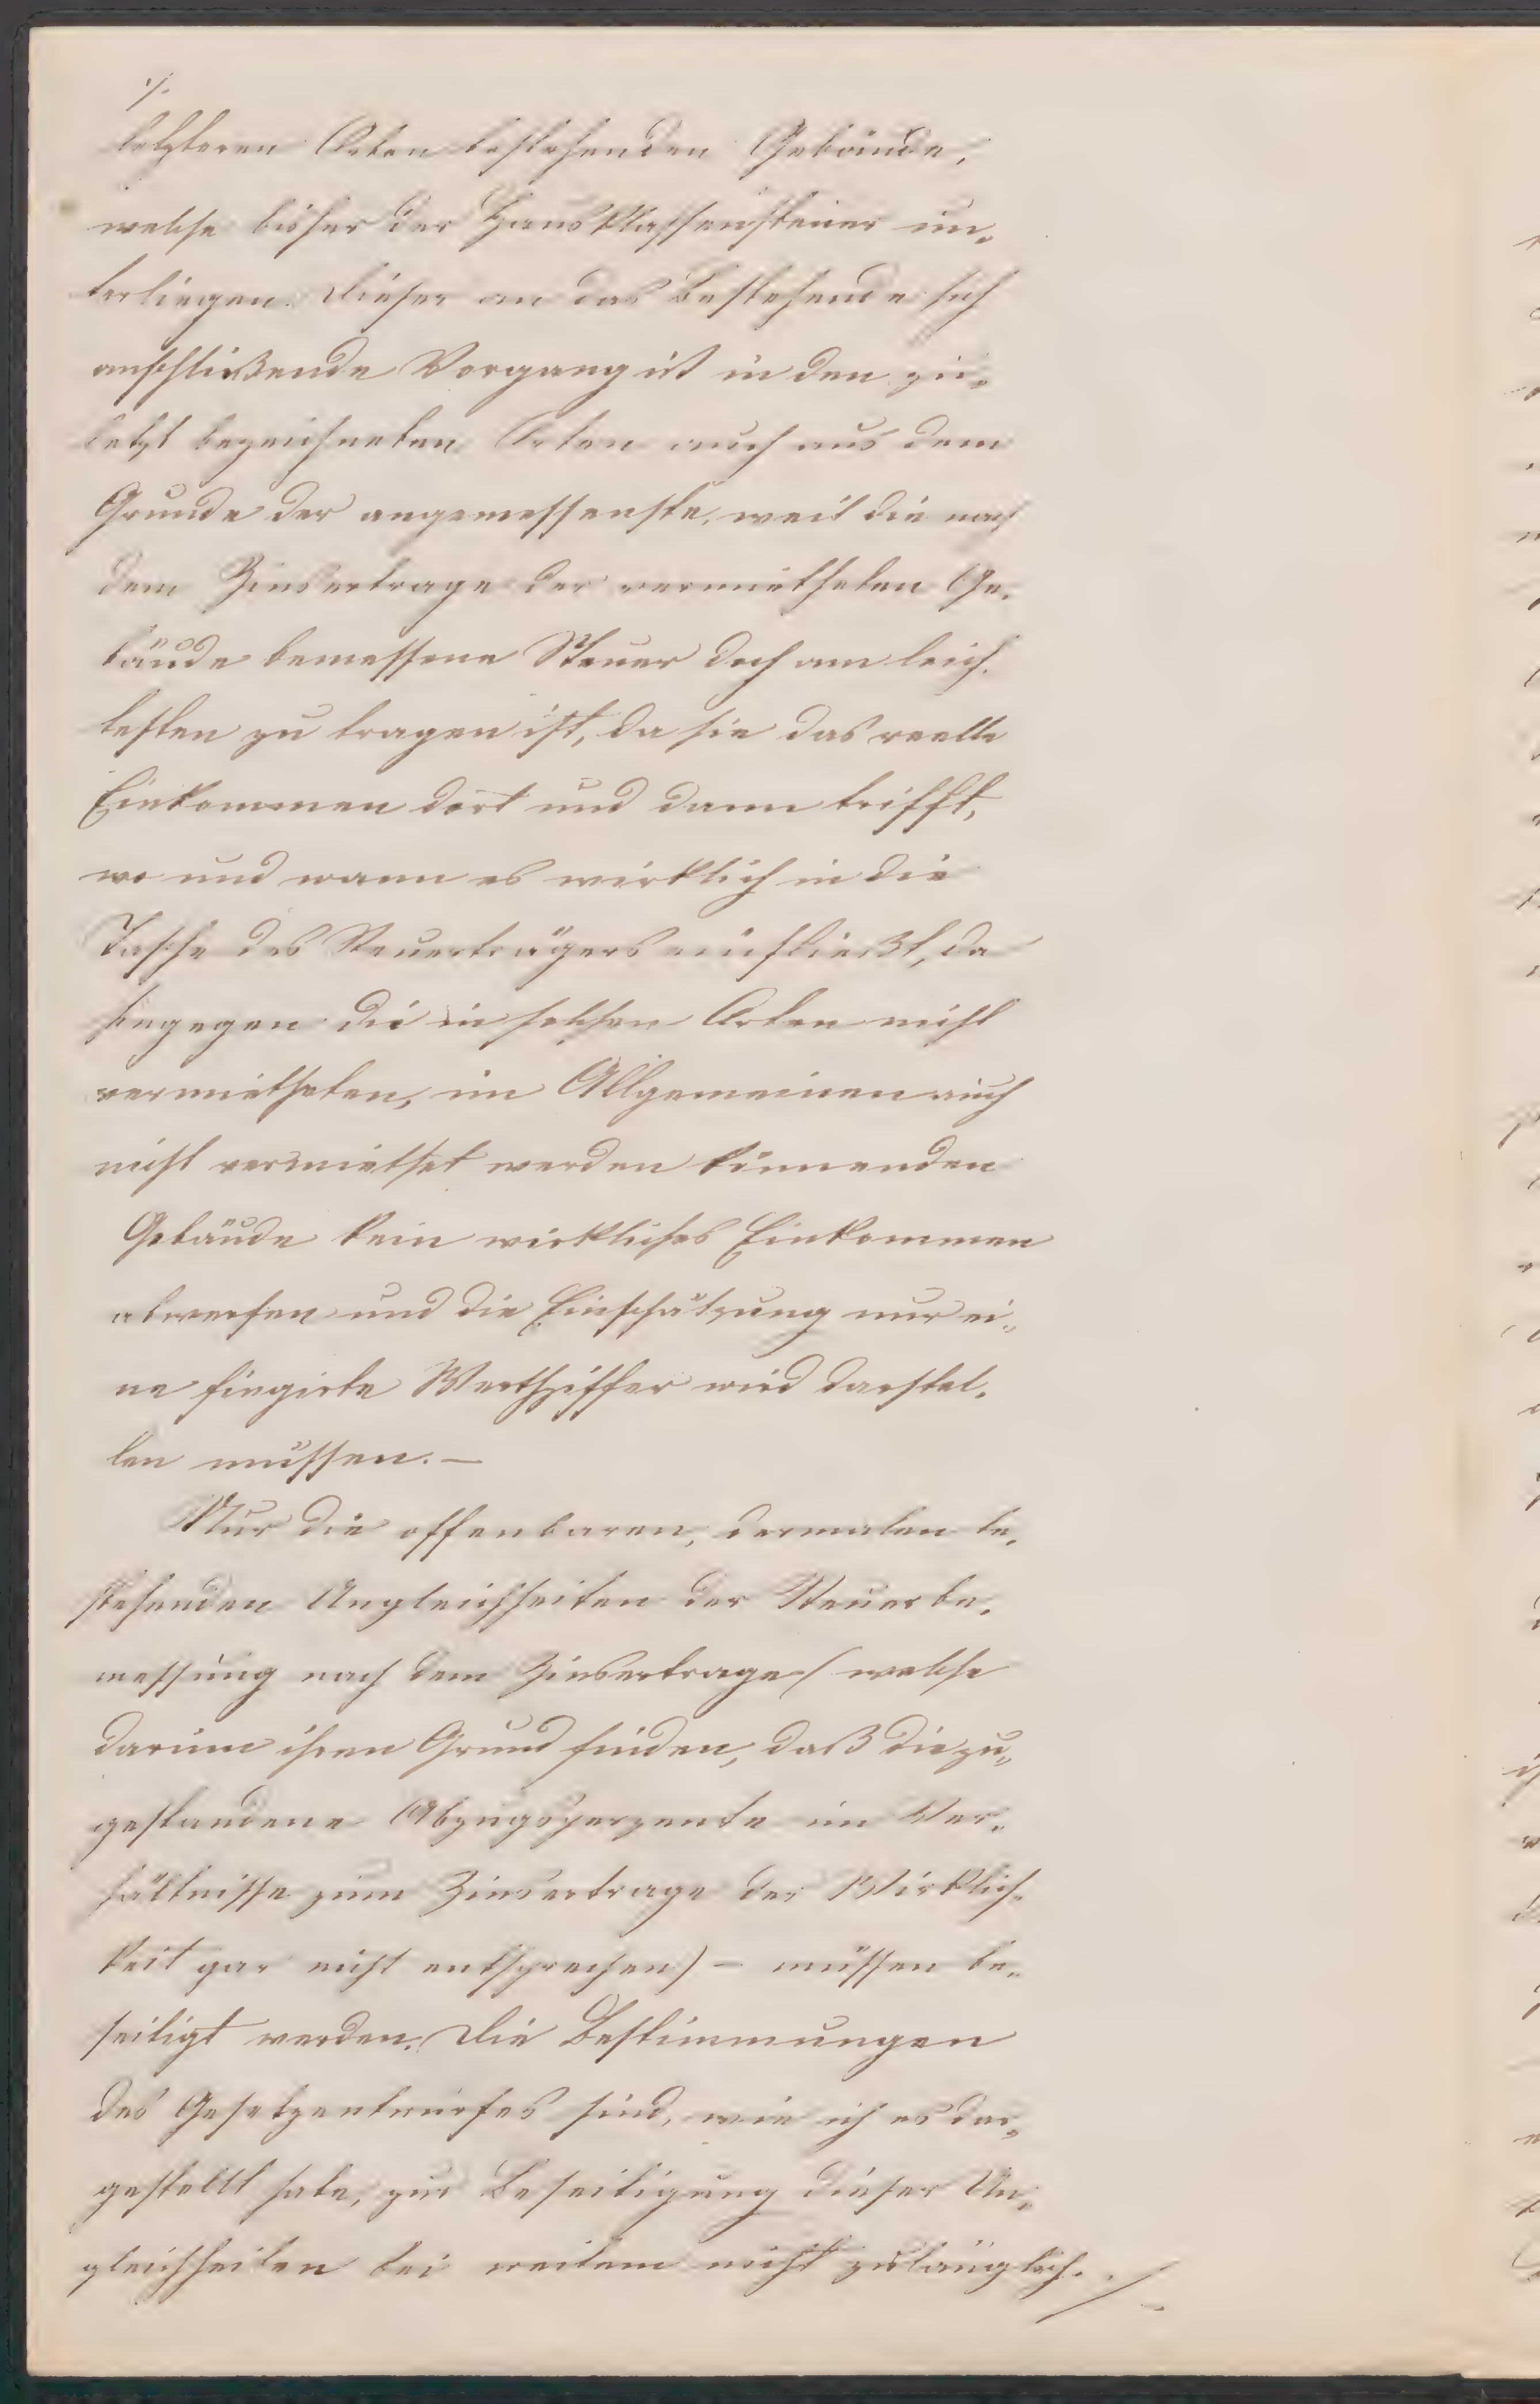 ./.
letzteren Orten bestehenden Gebäude,
welche bisher der Hausklassensteuer un„
terliegen. Dieser an das Bestehende sich
anschließende Vorgang ist in den zu„
letzt bezeichneten Orten auch aus dem
Grunde der angemessenste, weil die nach
dem Zinsertrage der vermietheten Ge„
bäude bemessene Steuer doch am leich„
testen zu tragen ist, da sie das reelle
Einkommen dort und dann trifft,
wo und wann es wirklich in die
Tasche des Steuerträgers einfließt, da
hingegen die in solchen Orten nicht
vermietheten, im Allgemeinen auch
nicht vermiethet werden könnenden
Gebäude kein wirkliches Einkommen
abwerfen und die Einschätzung nur ei„
ne fingirte Werthziffer wird darstel„
len müssen. —
Nur die offenbaren, dermalen be„
stehenden Ungleichheiten der Steuerbe„
messung nach dem Zinsertrage (welche
darum ihren Grund finden, daß die zu„
gestandene Abzugsperzente im Ver„
hältnisse zum Zinsertrage der Wirklich„
keit gar nicht entsprechen) — müssen be„
seitigt werden. Die Bestimmungen
des Gesetzentwurfes sind, wie ich es dar„
gestellt habe, zur Beseitigung dieser Un„
gleichheiten bei weitem nicht zulänglich. ./.